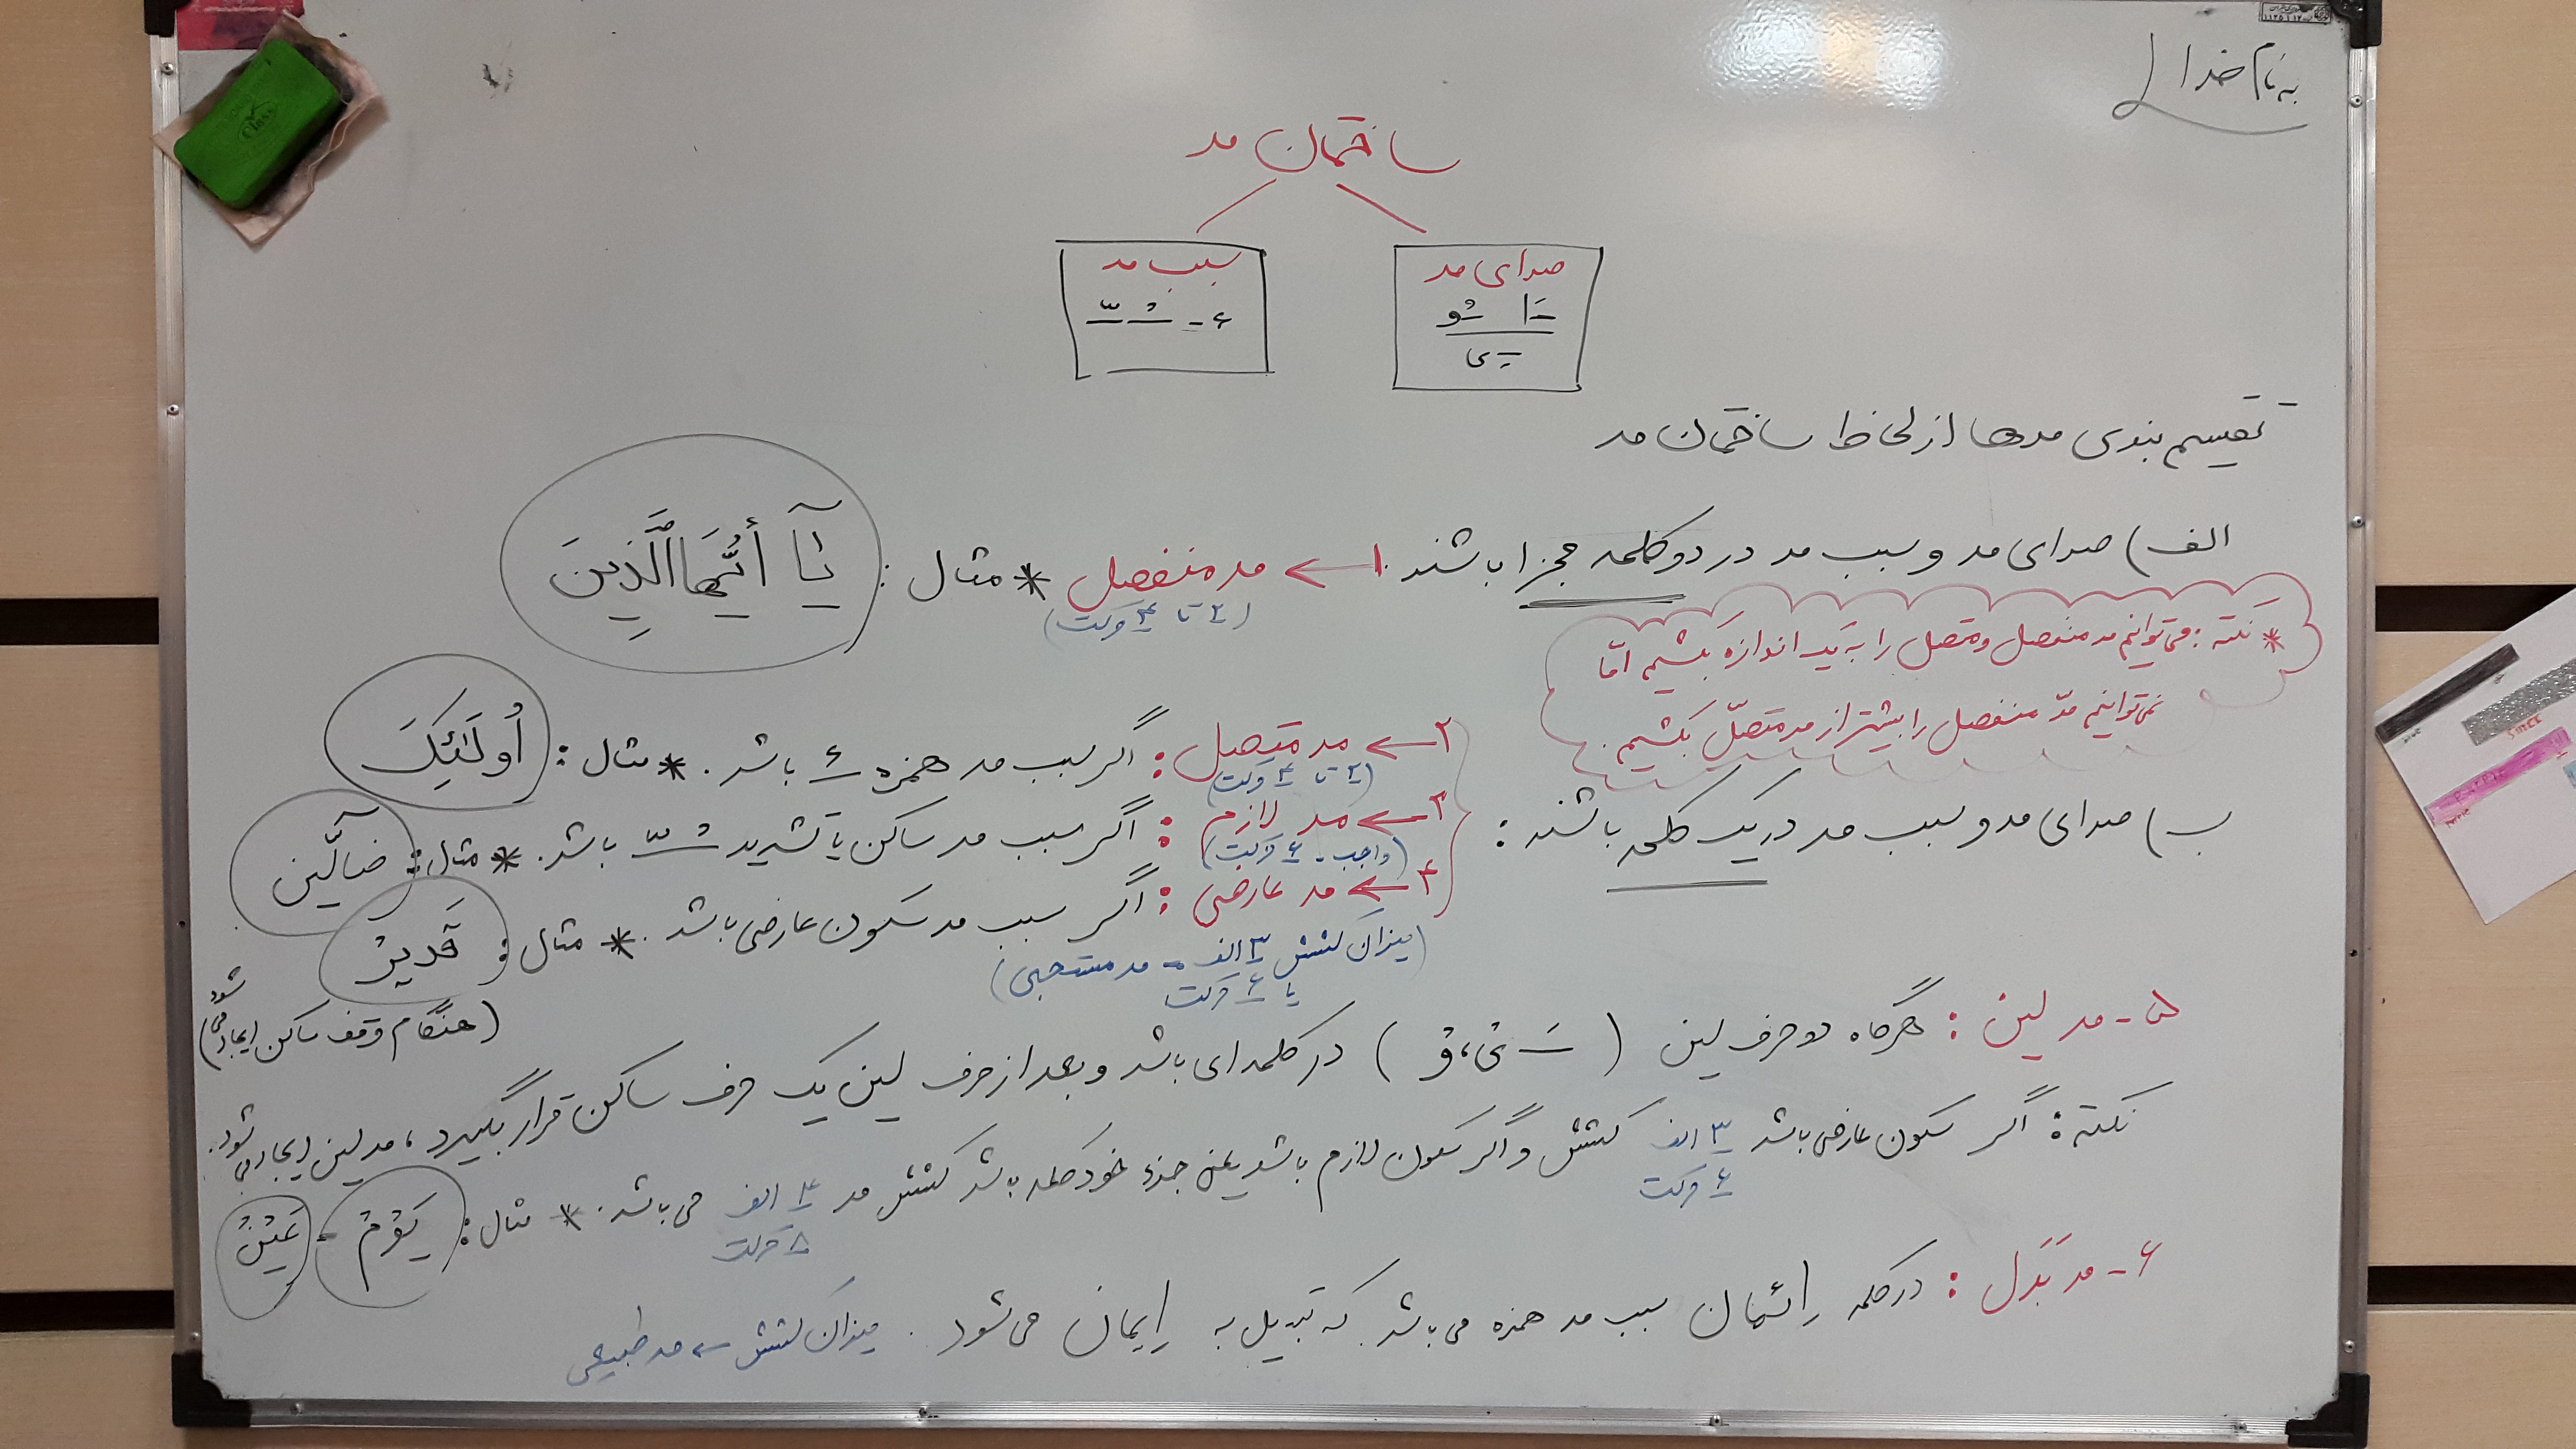 به نام خدا
ساختمان مد
صدای مد
ـَا ـُو
ـِی
سبب مد
ء - ـْ ـّ
تقسیم بندی مدها از لحاظ ساختمان مد
الف) صدای مد و سبب مد در دو کلمه مجزا باشند. ۱ ← مد منفصل * مثال : یَآ أَیُّهَا الَّذِینَ
(۲ تا ۴ حرکت)
* نکته : می توانیم مد منفصل و متصل را به یک اندازه بکشیم امّا
نمی توانیم مدّ منفصل را بیشتر از مد متصّل بکشیم.
ب) صدای مد و سبب مد در یک کلمه باشند :
۲ ← مد متصل : اگر سبب مد همزه ء باشد. * مثال : أُولَئِکَ
(۲ تا ۴ حرکت)
۳ ← مد لازم : اگر سبب مد ساکن یا تشدید ـْ ـّ باشد. * مثال : ضالّین
(واجب - ۶ حرکت)
۴ ← مد عارضی : اگر سبب مد سکون عارضی باشد. * مثال : قَدیرْ
(میزان کشش ۳ الف - مد مستحبی)
یا ۶ حرکت
(هنگام وقف ساکن ایجاد می شود)
۵ - مد لین : هرگاه دو حرف لین ( ـَ یْ، وْ ) در کلمه ای باشد و بعد از حرف لین یک حرف ساکن قرار بگیرد، مد لین ایجاد می شود.
نکته : اگر سکون عارضی باشد ۳ الف کشش و اگر سکون لازم باشد یعنی جزء خود کلمه باشد کشش مد ۴ الف می باشد. * مثال : یَوْمْ - عَیْنْ
۶ حرکت
۸ حرکت
۶ - مد بَدَل : در کلمه إئمان سبب مد همزه می باشد. که تبدیل به إیمان می شود. میزان کشش ← مد طبیعی